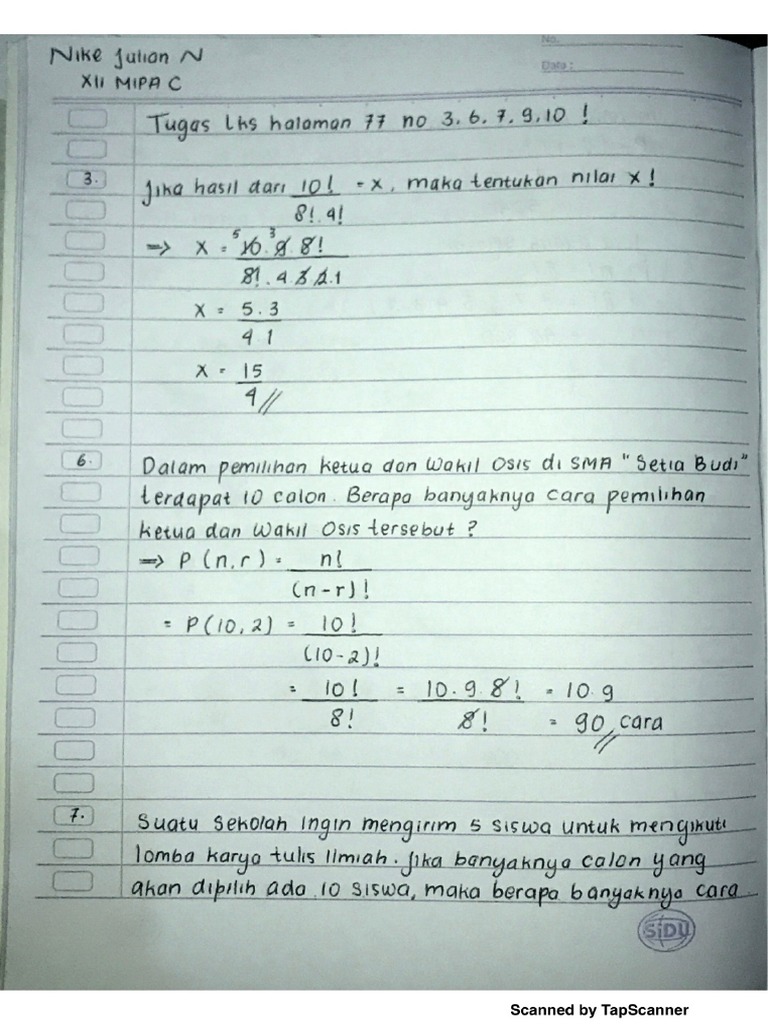 No.
Date :
Nike Julian N
XII MIPA C
Tugas Lks halaman 77 no 3, 6, 7, 9, 10 !
3. Jika hasil dari 10! / 8! . 4! = x, maka tentukan nilai x !
⇒ x = 10 . 9 . 8! / 8! . 4 3 2 . 1
5 3
x = 5 . 3 / 4 1
x = 15 / 4 //
6. Dalam pemilihan ketua dan Wakil Osis di SMA "Setia Budi"
terdapat 10 calon. Berapa banyaknya cara pemilihan
ketua dan Wakil Osis tersebut ?
⇒ P (n, r) = n! / (n - r)!
= P (10, 2) = 10! / (10 - 2)!
= 10! / 8! = 10 . 9 . 8! / 8! = 10 . 9
= 90 cara //
7. Suatu Sekolah ingin mengirim 5 siswa untuk mengikuti
lomba karya tulis ilmiah. Jika banyaknya calon yang
akan dipilih ada 10 siswa, maka berapa banyaknya cara
SiDU
Scanned by TapScanner